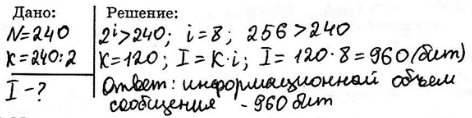 Дано: Решение:
N=240 2ⁱ>240; i=8; 256>240
K=240:2 K=120; I=K·i; I=120·8=960(бит)
I-? Ответ: информационной объем
сообщения - 960 бит